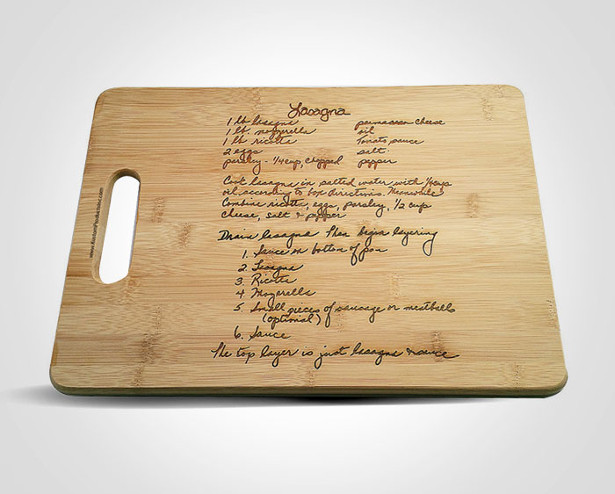 Lasagna
1 lb. lasagna parmesan cheese
1 lb. mozzerella oil
1 lb. ricotta Tomato sauce
2 eggs salt
parsley - 1/4 cup, chopped pepper
Cook lasagna in salted water with 1/4 cup
oil according to box directions. Meanwhile
Combine ricotta, eggs, parsley, 1/2 cup
cheese, salt & pepper
Drain lasagna then begin layering
1. Sauce on bottom of pan
2. Lasagna
3. Ricotta
4 Mozerella
5 Small pieces of sausage or meatballs
(optional)
6. Sauce
The top layer is just lasagna & sauce